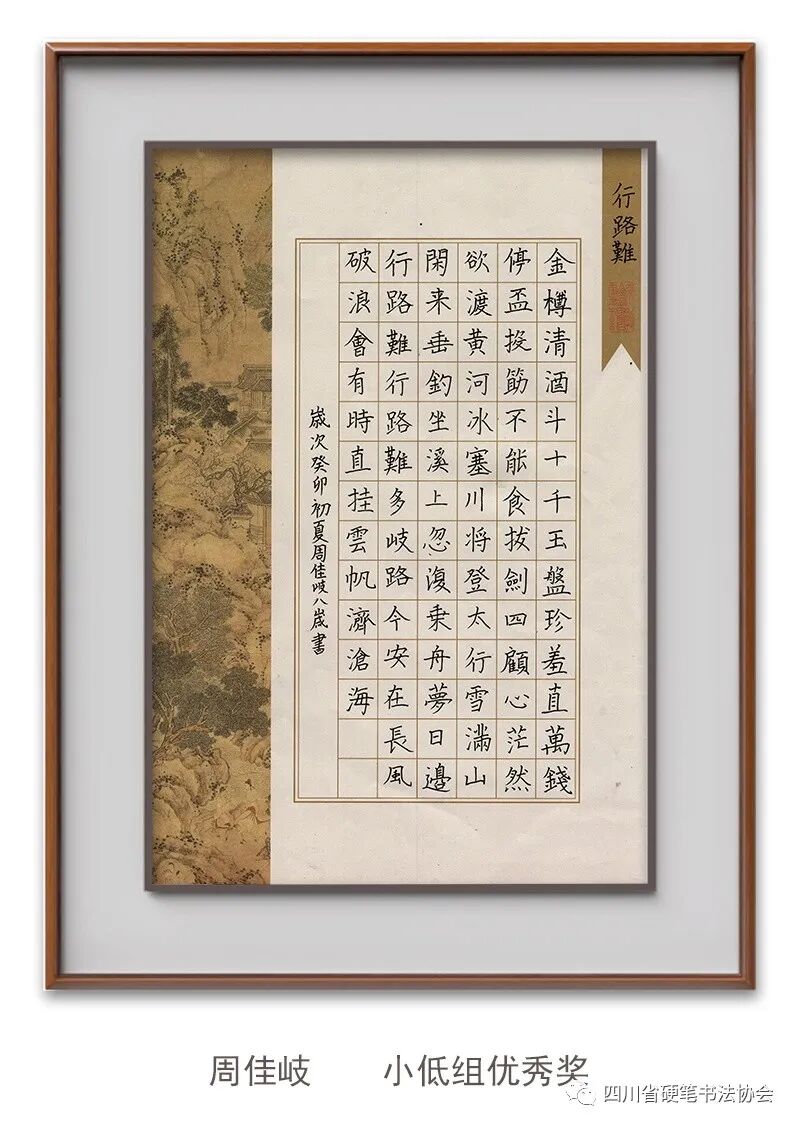 行路難
金樽清酒斗十千玉盤珍羞直萬錢
停盃投筯不能食拔劍四顧心茫然
欲渡黄河冰塞川将登太行雪滿山
閑来垂釣坐溪上忽復乘舟夢日邊
行路難行路難多岐路今安在長風
破浪會有時直挂雲帆濟滄海
歲次癸卯初夏周佳岐八歲書
周佳岐 小低组优秀奖
四川省硬笔书法协会